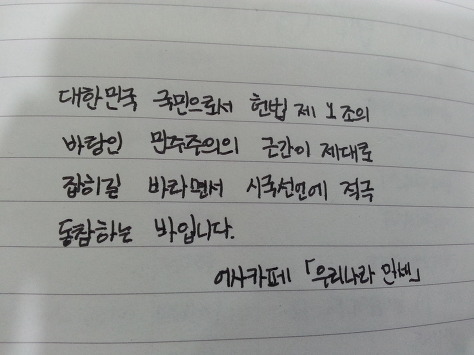 대한민국 국민으로서 헌법 제 1조의
바탕인 민주주의의 근간이 제대로
잡히길 바라면서 시국선언에 적극
동참하는 바입니다.
역사카페 「우리나라 만세」